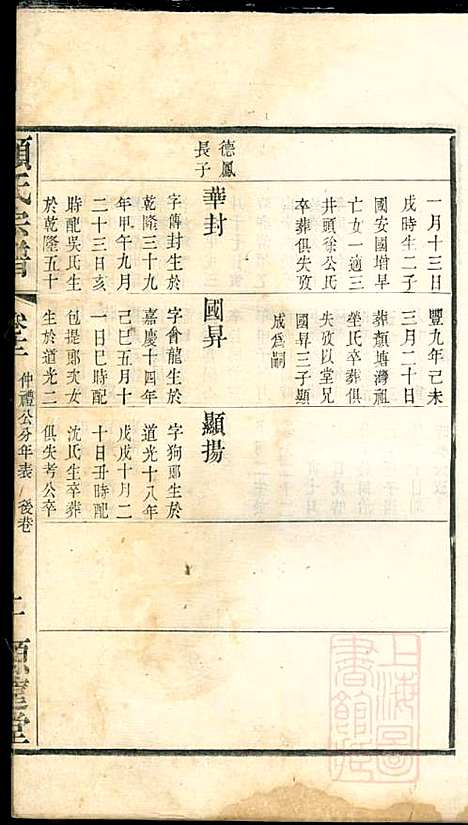 一月十三日
戌時生二子
國安國增早
亡女一適三
井頭徐公氏
卒葬俱失攷
豐九年己未
三月二十日
葬顏塘灣祖
塋氏卒葬俱
失攷以堂兄
國昇三子顯
成爲嗣
德鳳
長子
華封
字傳封生於
乾隆三十九
年甲午九月
二十三日亥
時配吳氏生
於乾隆五十
國昇
字會龍生於
嘉慶十四年
己巳五月十
一日巳時配
包提鄭次女
生於道光二
顯揚
字狗鄭生於
道光十八年
戊戌十月二
十日丑時配
沈氏生卒葬
俱失考公卒
氏宗譜
仲禮公分年表
後巷
上海圖書館藏